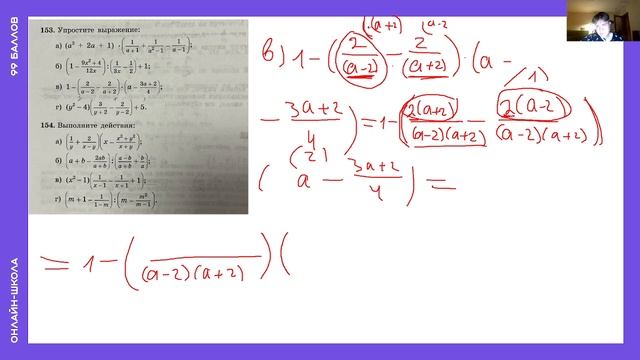 99 БАЛЛОВ
ОНЛАЙН-ШКОЛА
153. Упростите выражение:
а) (a² + 2a + 1) · (1/(a+1) + 1/(a²−1) − 1/(a−1));
б) (1 − (9x²+4)/(12x)) : (1/(3x) − 1/2) + 1;
в) 1 − (2/(a−2) − 2/(a+2)) · (a − (3a+2)/4);
г) (y² − 4)(3/(y+2) − 2/(y−2)) + 5.
154. Выполните действия:
б) (a + b − 2ab/(a+b)) : ((a−b)/(a+b) + b/a);
в) (x² − 1)(1/(x−1) − 1/(x+1) + 1);
г) (m + 1 − 1/(1−m)) : (m − m²/(m−1)).
(a+2) (a-2
в) 1 − (2/(a-2) − 2/(a+2)) · (a −
− (3a+2)/4) = 1 − (2(a+2)/((a-2)(a+2)) − 2(a-2)/((a-2)(a+2)))
( a − (3a+2)/4 ) =
= 1 − ( /((a-2)(a+2)) ) (